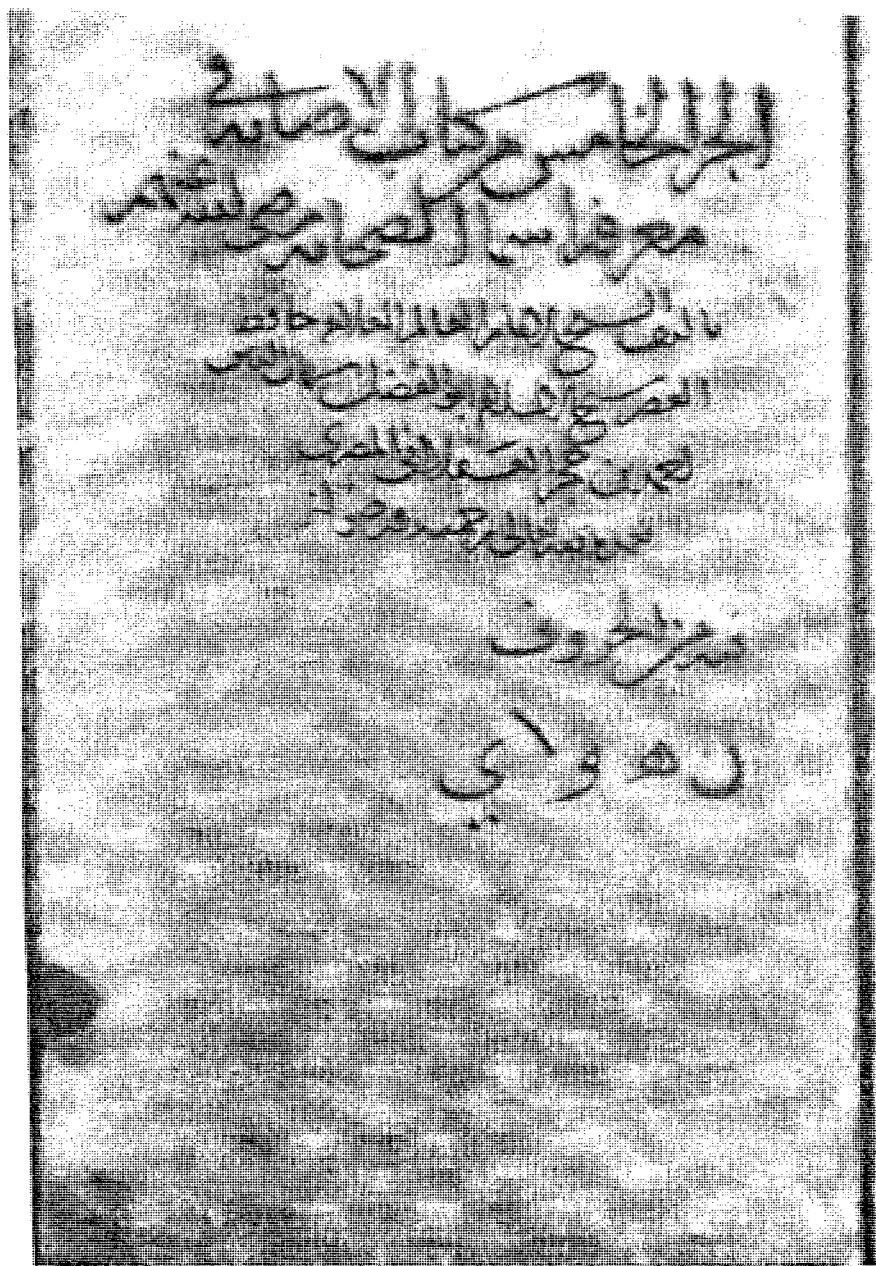 الجزء الخامس من كتاب الاصابة في
معرفة اسما الصحابة رضي الله عنهم
تاليف الشيخ الامام العالم العالم حافظ
العصر شيخ الاسلام ابو الفضل شهاب الدين
احمد بن حجر العسقلاني المصري
برحمته ورضوانه
فيه من الحروف
ن ه و ا ي